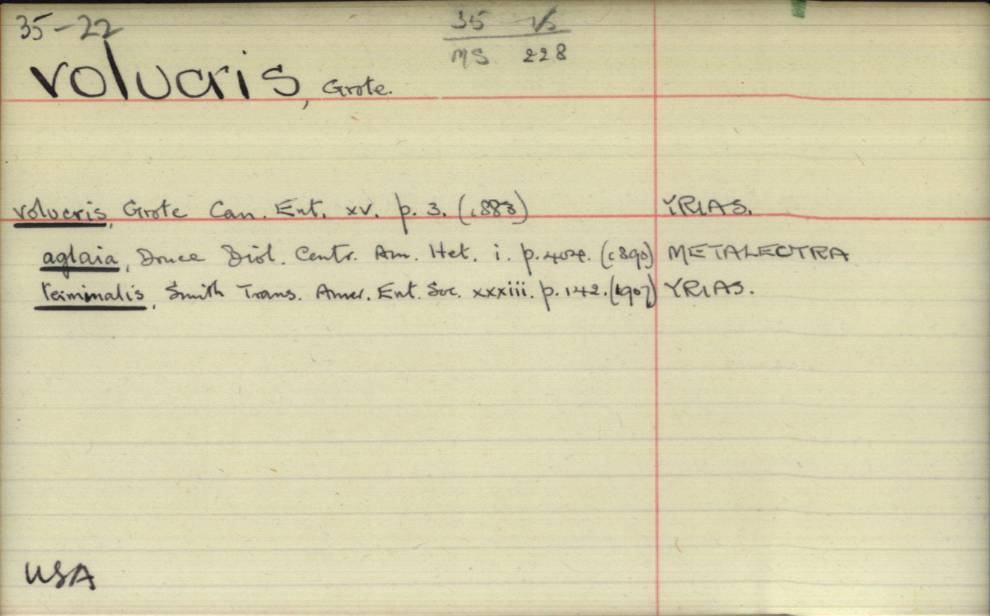 35-22
35
MS 228
volucris, Grote.
volucris, Grote Can. Ent. xv. p. 3. (1883) YRIAS.
aglaia, Druce Biol. Centr. Am. Het. i. p. 404. (1890) METALECTRA
terminalis, Smith Trans. Amer. Ent. Soc. xxxiii. p. 142. (1907) YRIAS.
USA